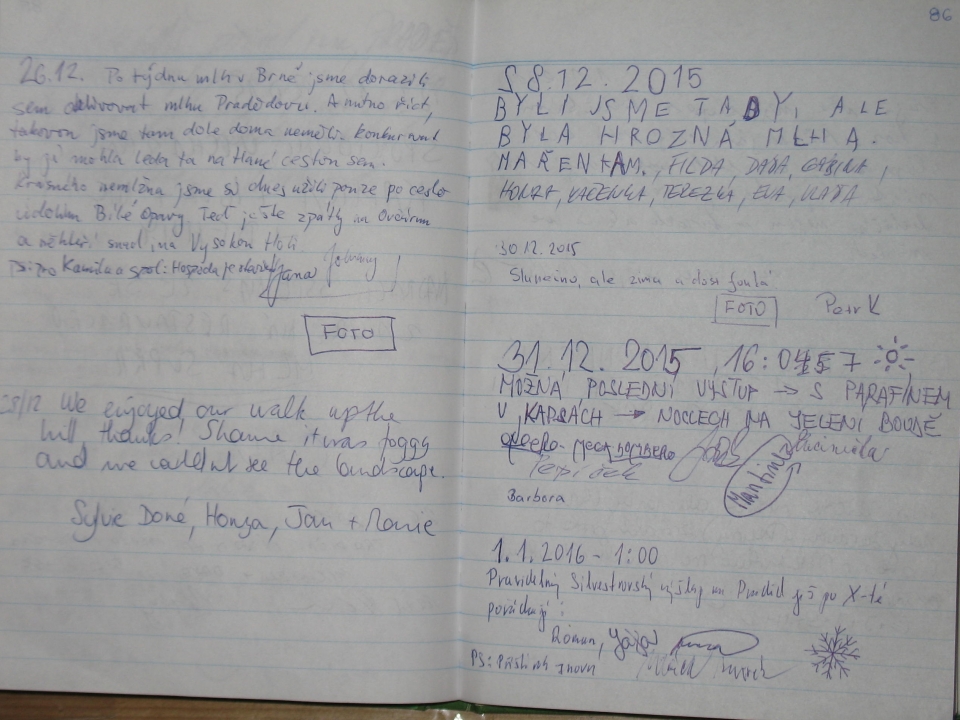 26.12. Po týdnu mlh v Brně jsme dorazili
sem mlhu Pradědovu. A nutno říct,
takovou jsme tam dole doma neměli. konkurovat
by jí mohla leda ta na Hané cestou sem.
Krásného nemlžna jsme si dnes užili pouze po cestě
údolím Bílé Opavy. Teď ještě zpátky na Ovčárnu
a na Vysokou Holi
PS: pro Kamila a spol: Hospoda je
Jana
FOTO
28/12 We enjoyed our walk up the
hill, thanks! Shame it was foggy
and we couldn't see the landscape.
Sylvie Doné, Honza, Jan +
86
28.12.2015
BYLI JSME TADY, ALE
BYLA HROZNÁ MLHA.
MAŘENKA M., FILDA, DÁŠA,
HONZA, KAČENKA, TEREZKA, EVA, VLAĎA
30.12.2015
Slunečno, ale zima a dost fouká
FOTO Petr K
31.12.2015, 16:0457
MOŽNÁ POSLEDNÍ VÝSTUP → S PARAFÍNEM
V KAPSÁCH → NOCLECH NA JELENÍ BOUDĚ
Pepíček
Martin
Barbora
1.1.2016 - 1:00
Pravidelný Silvestrovský výšlap na Praděd již po X-té
pořádají:
Roman,
PS: Příští rok znovu